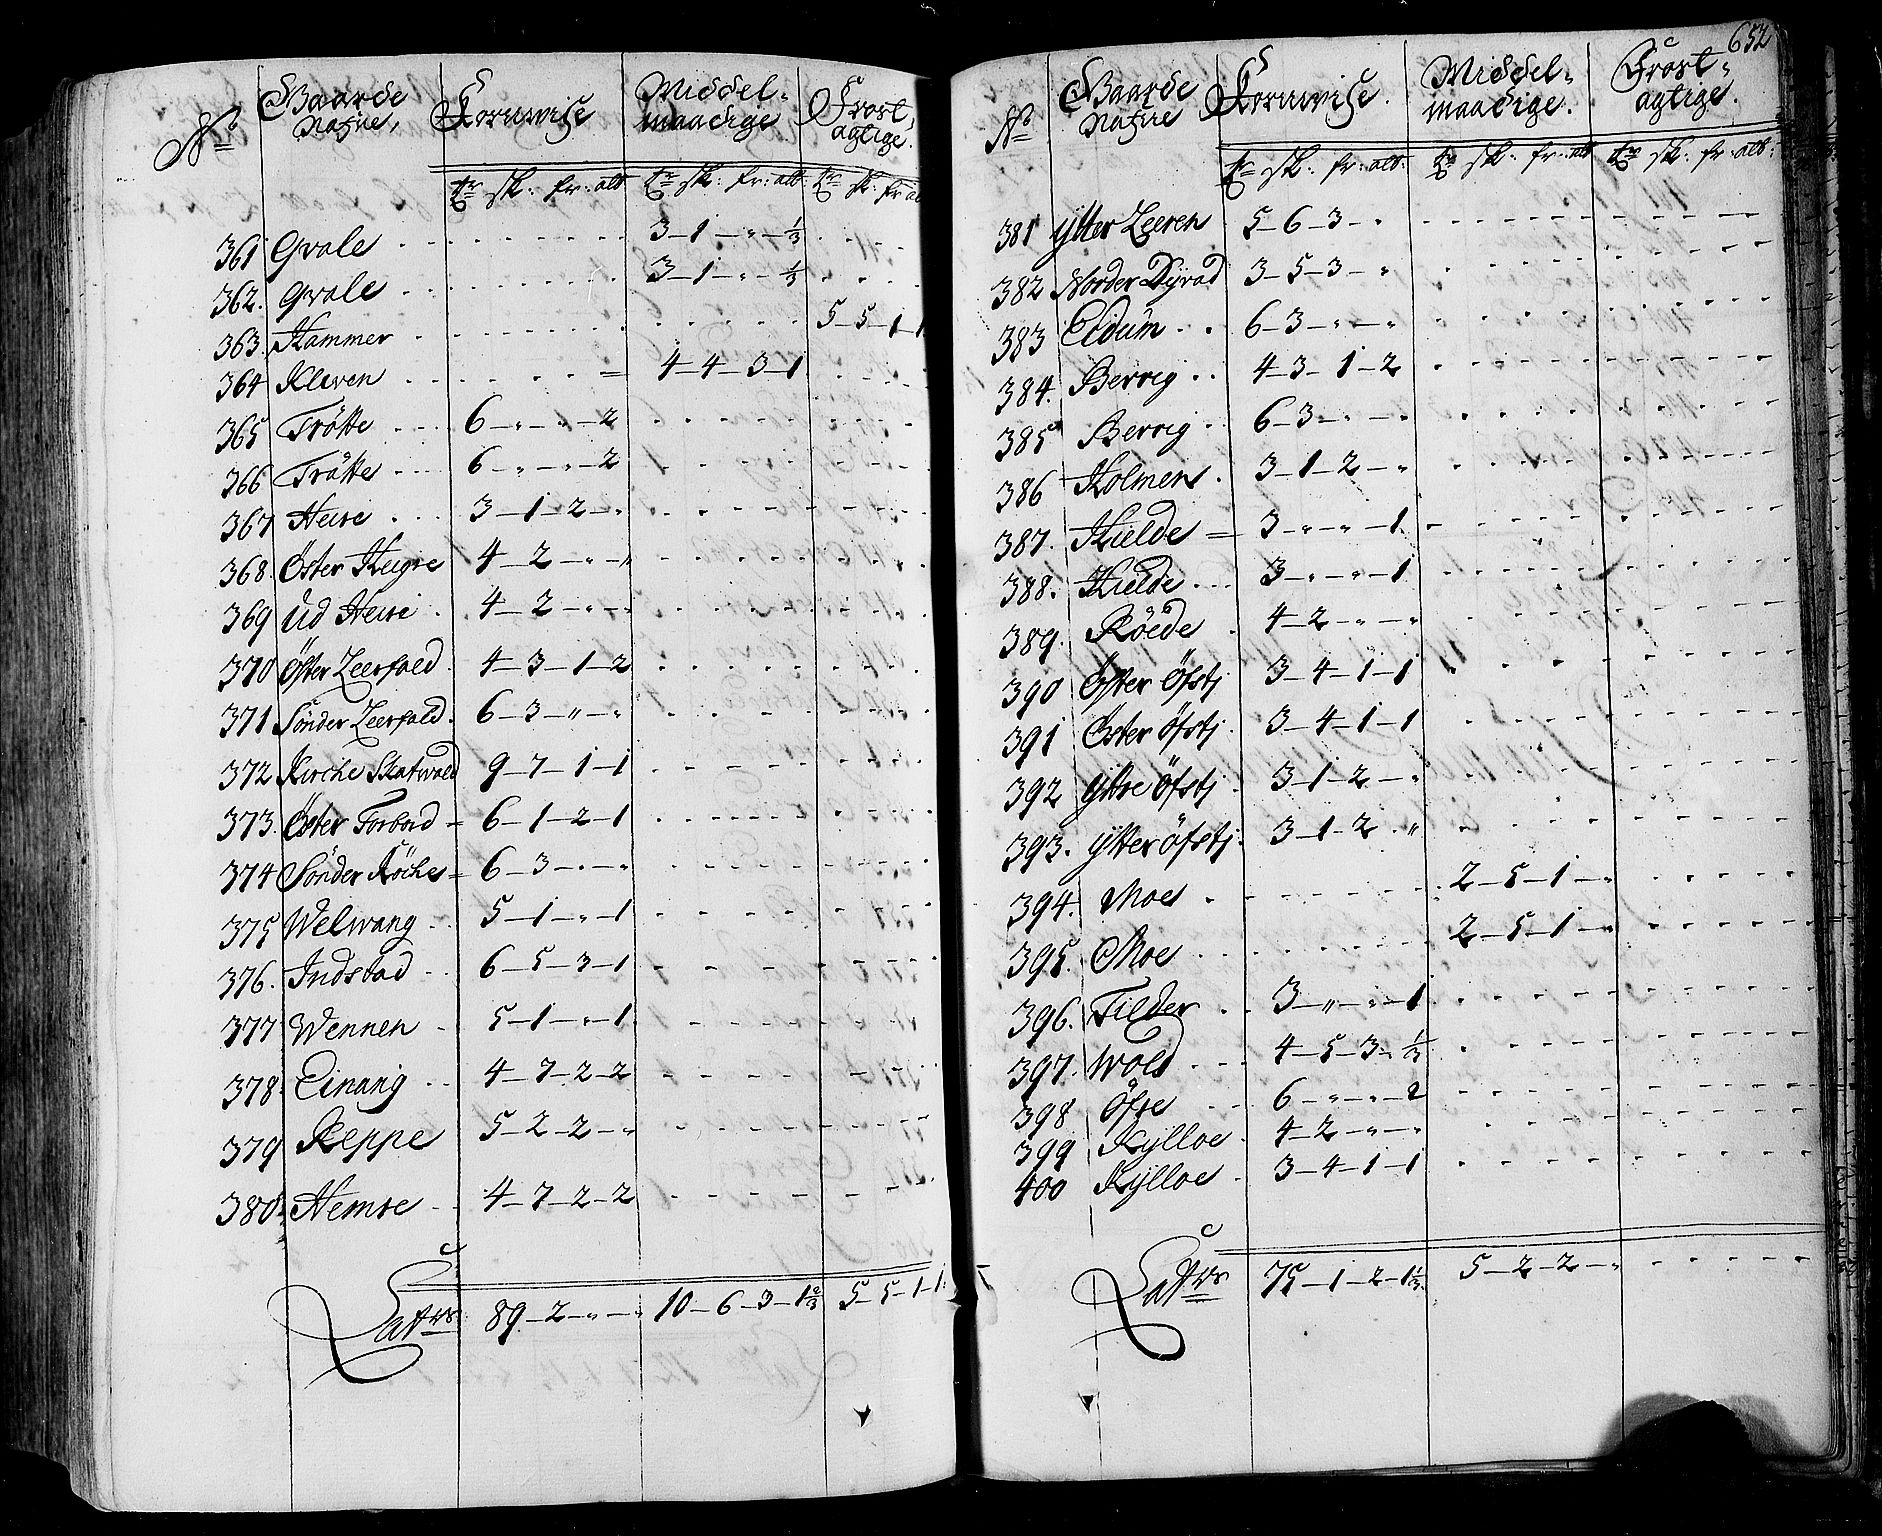 No Gaarde Nafne, Kornwise Middel-maadige Frost-agtige.
tr sk: fr: alb tr sk: fr: alb: tr sk: fr: al
361 Gvale . . . 3–1–„–⅓ . . .
362. Gvale . . . 3–1–„–⅓ . . .
363. Hammer . . . 5–5–1–1
364 Kleven . . . 4–4–3–1 . . .
365 Trötte . . . 6–„–„–2
366 Trötte . . . 6–„–„–2
367 Heire . . . 3–1–2–„
368. Öster Heigre 4–2–„–„
369 Ud Heire . 4–2–„–„
370 Öster Leerfald . 4–3–1–2
371 Sönder Leerfald . 6–3–„–„
372 Kirche Skatwald 9–7–1–1
373. Öster Forbord – 6–1–2–1
374 Sönder Köche – 6–3–„–„
375 Welwang . . 5–1–„–1
376. Indstad . . 6–5–3–1
377 Wennen . 5–1–„–1
378. Einang . . 4–7–2–2
379 Reppe 5–2–2–„
380. Hemre . . 4–7–2–2
Latus 89–2–„–„ 10–6–3–1⅔ 5–5–1–1
652
No Gaarde Nafne Kornwise. Middel-maadige. Frost-agtige.
tr sk: fr: alb: tr sk: fr: alb tr sk: fr: alb:
381 Ytter Leeren 5–6–3–„
382 Norder Dyvad 3–5–3–„
383 Eidum . . 6–3–„–„
384. Berrig . . 4–3–1–2
385 Berrig . . 6–3–„–„
386 Holmen . 3–1–2–„
387. Hielde – 3–„–„–1
388. Hielde . . . 3–„–„–1
389. Röede . 4–2–„–„
390 Öster Öfstj 3–4–1–1
391 Öster Öfstj 3–4–1–1
392 Yttre Öfstj 3–1–2–„
393. Ytter Öfstj . 3–1–2–„
394. Moe . . . 2–5–1–„
395. Moe . . . 2–5–1–„
396. Tilder . . 3–„–„–1
397. Wold . . . 4–5–3–⅓
398 Öfre . . 6–„–„–2
399 Kylloe . 4–2–„–„
400 Kylloe . 3–4–1–1
Latus 75–1–2–1⅓ 5–2–2–„